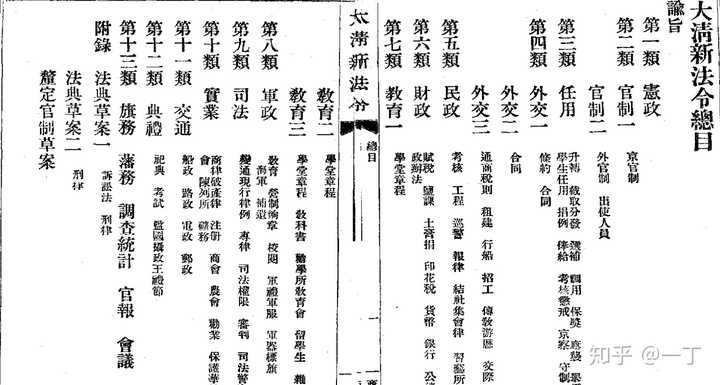 大淸新法令總目
諭旨
第一類 憲政
第二類 官制一
京官制
官制二
外官制 出使人員
第三類 任用
升轉 截取分發 選補 調用 保奬
學生任用 捐例 俸給 考核懲戒 京察 守制
第四類 外交一
條約 合同
外交二
合同
外交三
通商稅則 租建 行船 招工 傳敎游歷 交際
第五類 民政
考核 工程 巡警 報律 結社集會律 習藝所
第六類 財政
賦稅 鹽課 土膏捐 印花稅 貨幣 銀行
政辦法
第七類 敎育一
學堂章程
大淸新法令
總目
一
敎育二
學堂章程
敎育三
學堂章程 敎科書 勸學所敎育會 留學生
第八類 軍政
敎育 營制餉章 校閱 軍禮軍服 軍器標旗
海軍 補遺
第九類 司法
變通現行律例 專律 司法權限 審判 司法警
第十類 實業
商律破產律 注冊 商會 農會 勸業 保護
會 陳列所 礦務
第十一類 交通
船政 路政 電政 郵政
第十二類 典禮
祀典 考試 監國攝政王禮節
第十三類 旗務 藩務 調查統計 官報 會議
附錄 法典草案一
訴訟法 刑律
法典草案二
刑律
釐定官制草案
知乎 @一丁